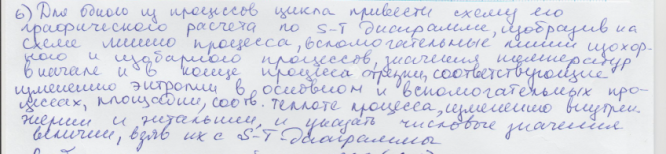 6) Для одного из процессов цикла привести схему его
графического расчета по S-T диаграмме, изобразив на
схеме линию процесса, вспомогательные линии изохор-
ного и изобарного процессов, значения температур
в начале и в конце процесса, отрезки, соответствующие
изменению энтропии в основном и вспомогательных про-
цессах, площади, соотв. теплоте процесса, изменению внутрен.
энергии и энтальпии, и указать числовые значения
величин, взяв их с S-T-диаграммы